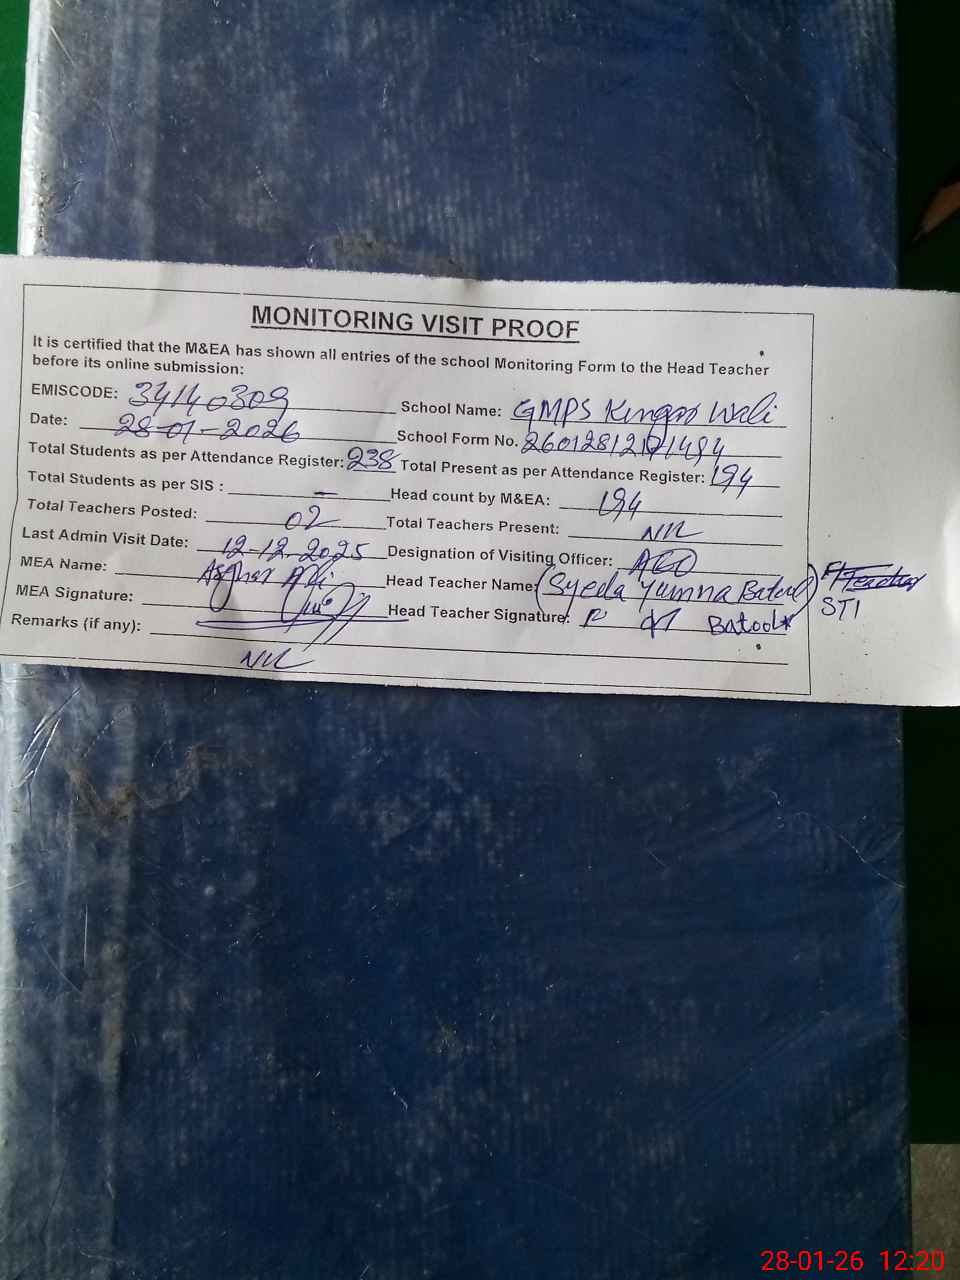 MONITORING VISIT PROOF
It is certified that the M&EA has shown all entries of the school Monitoring Form to the Head Teacher
before its online submission:
EMISCODE: 34140309 School Name: GMPS Kingra Wali
Date: 28-01-2026 School Form No. 2601281211494
Total Students as per Attendance Register: 238 Total Present as per Attendance Register: 194
Total Students as per SIS : — Head count by M&EA: 194
Total Teachers Posted: 02 Total Teachers Present: NIL
Last Admin Visit Date: 12-12-2025 Designation of Visiting Officer: AEO
MEA Name: Asghar Ali Head Teacher Name: (Syeda Yumna Batool) Teacher
STI
MEA Signature: Head Teacher Signature: Batool
Remarks (if any):
NIL
28-01-26 12:20